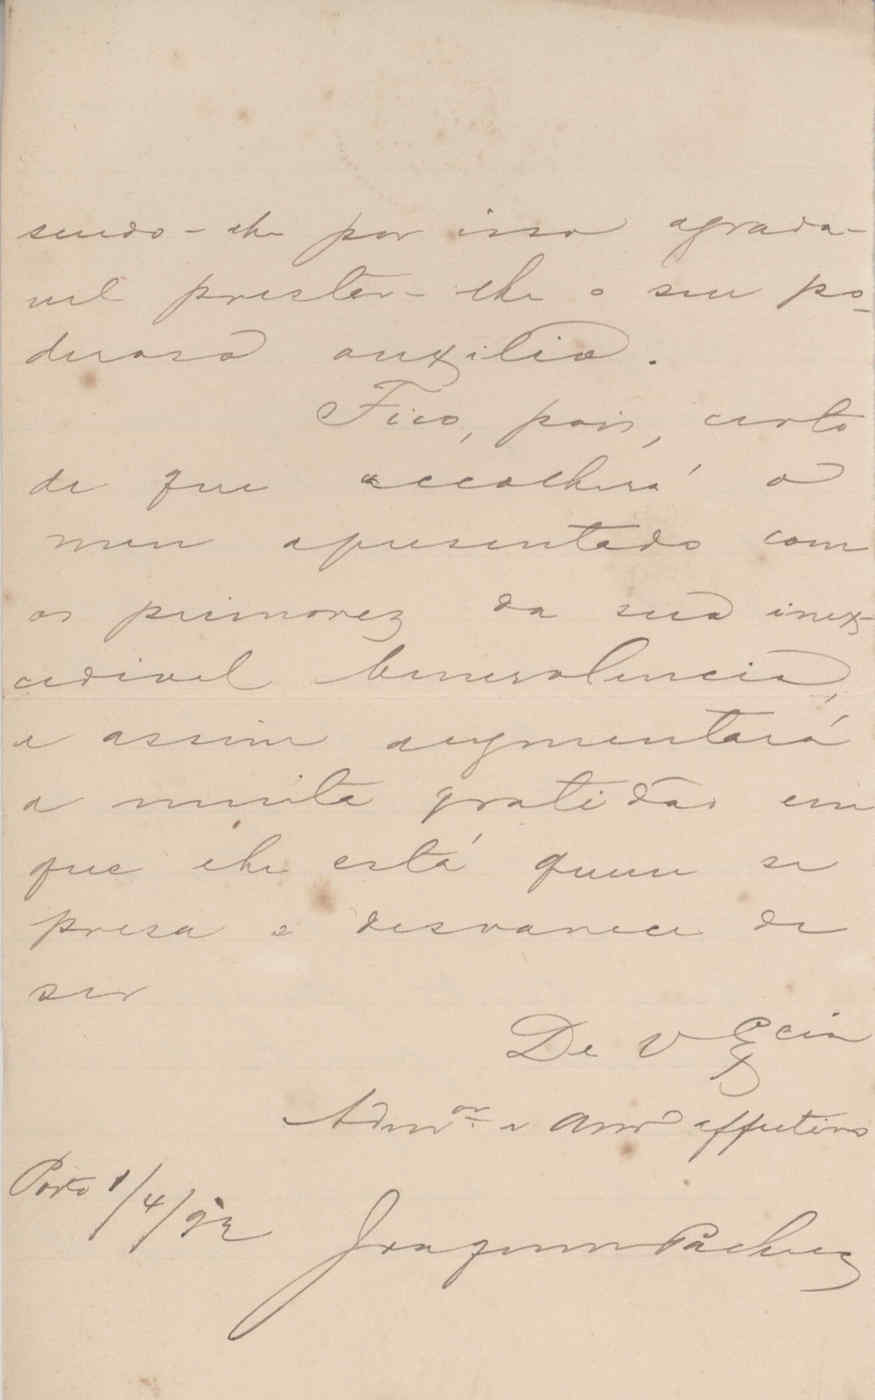 sendo-lhe por isso agrada-
vel prestar-lhe o seu po-
deroso auxilio.
Fico, pois, certo
de que accolherá o
meu apresentado com
os primorez da sua inex-
cedivel benevolencia,
e assim augmentará
a muita gratidão em
que lhe está quem se
presa e desvanece de
ser
De V Excia
Admor e Amo effectivo
Porto 1/4/92
Joaquim Pacheco